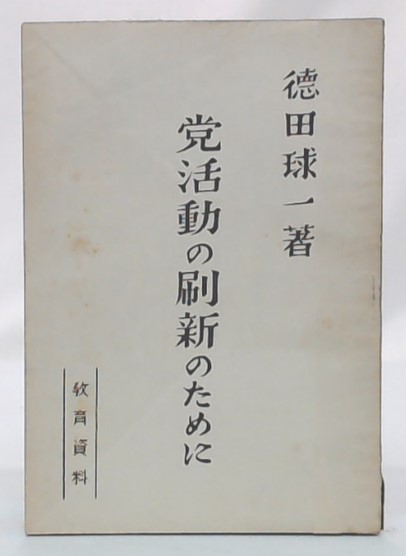 徳田球一著
党活動の刷新のために
教育資料